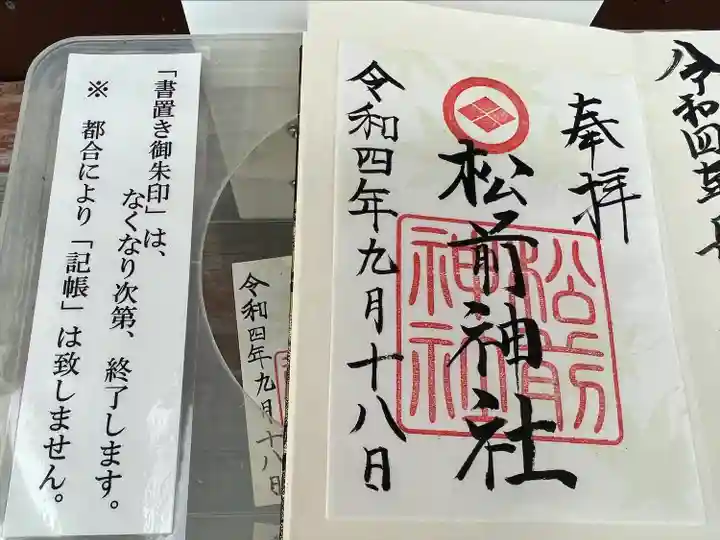 奉拝
松前神社
令和四年九月十八日
松前
神社
「書置き御朱印」は、
なくなり次第、終了します。
※ 都合により「記帳」は致しません。
令和四年九月十八日
令和四